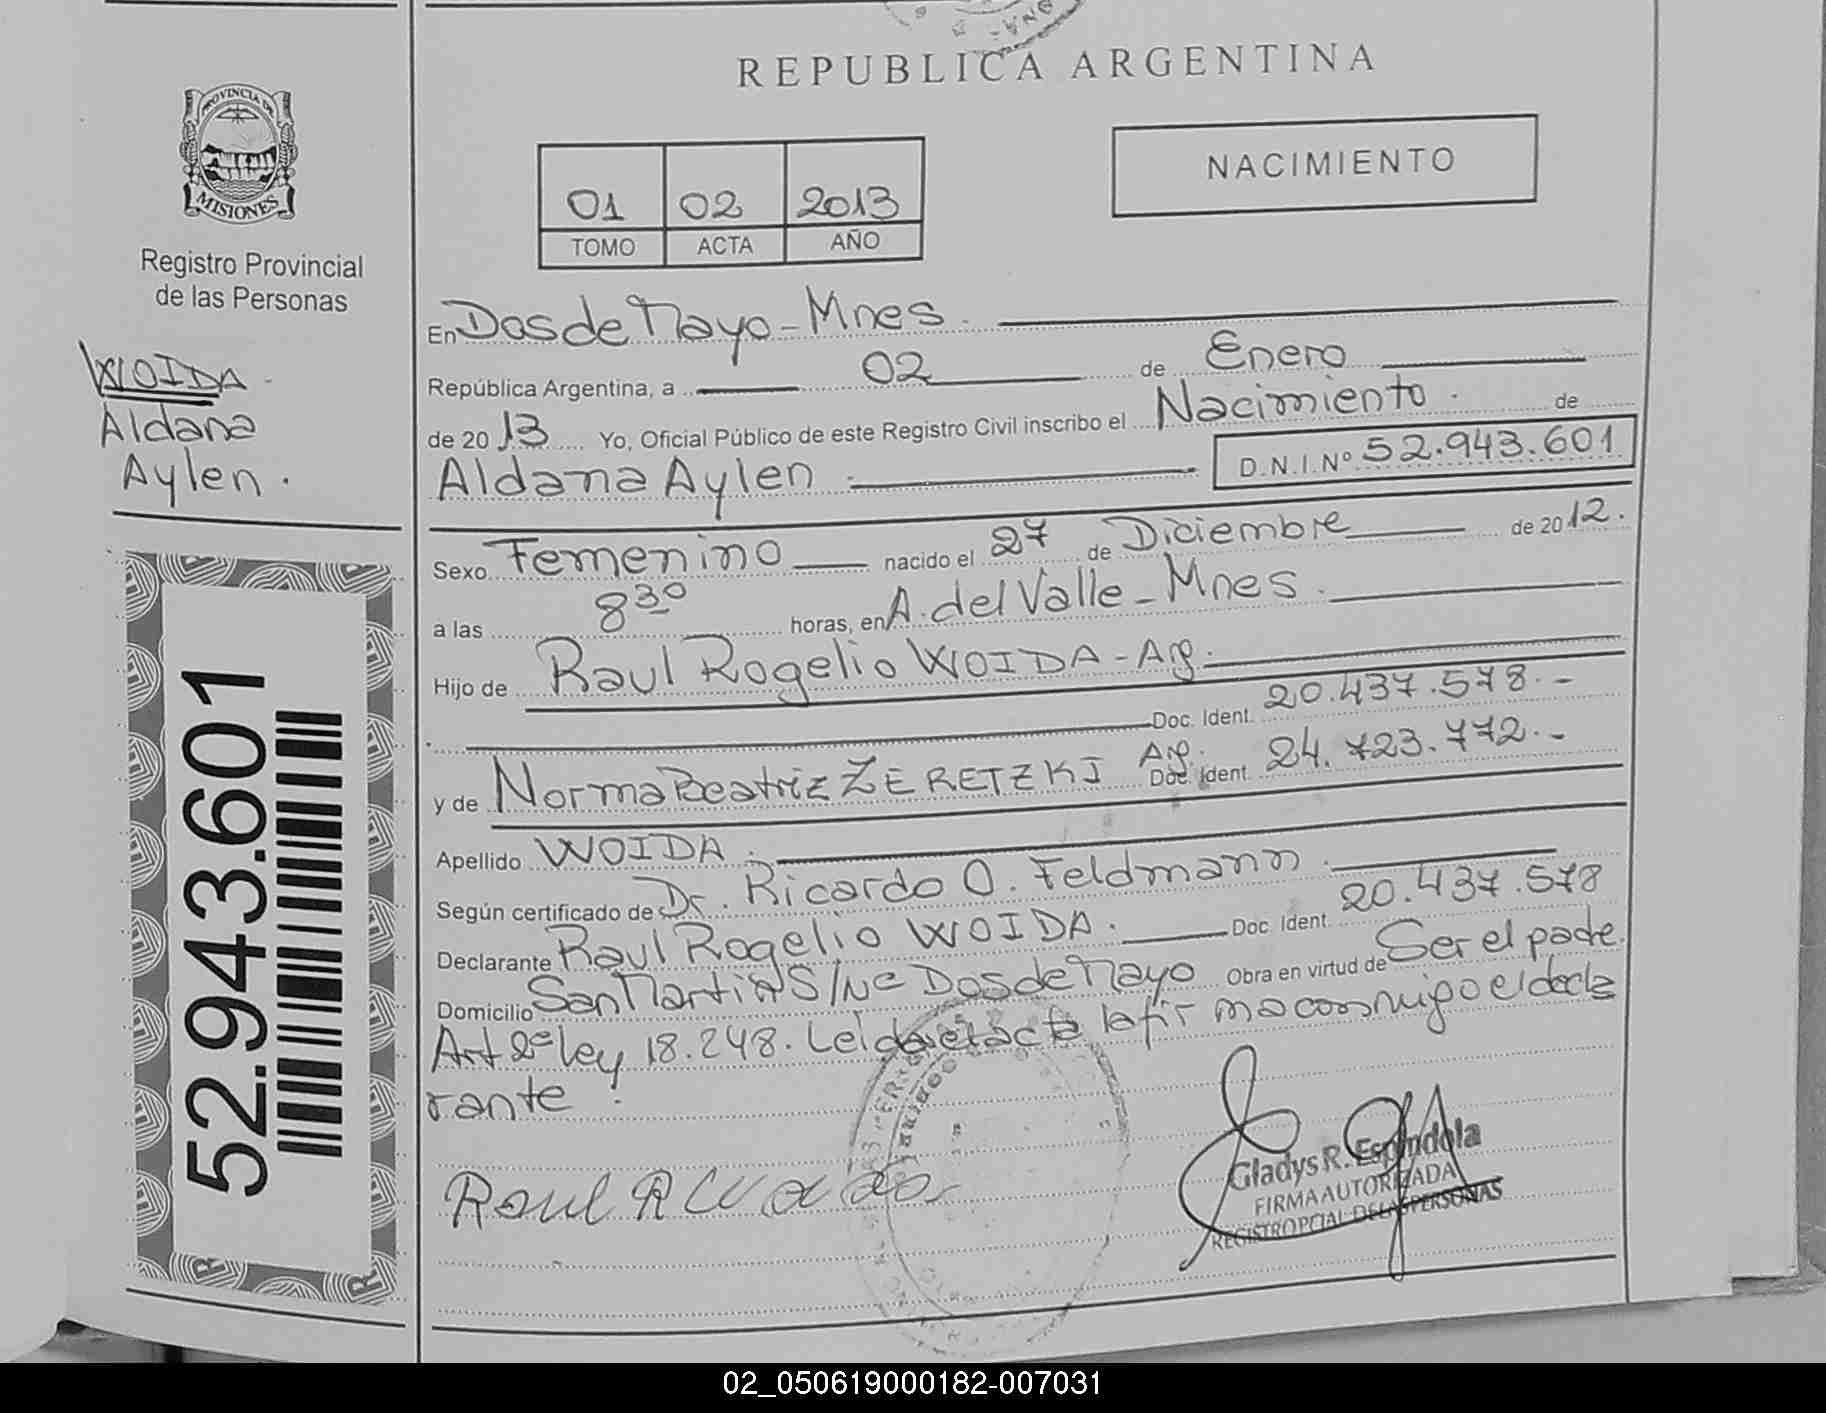 REPUBLICA ARGENTINA
PROVINCIA DE
MISIONES
Registro Provincial
de las Personas
WOIDA
Aldana
Aylen.
52.943.601
01 02 2013
TOMO ACTA AÑO
NACIMIENTO
En Dos de Mayo - Mnes.
República Argentina, a 02 de Enero
de 20 13 Yo, Oficial Público de este Registro Civil inscribo el Nacimiento. de
Aldana Aylen D.N.I.Nº 52.943.601
Sexo Femenino nacido el 27 de Diciembre de 20 12.
a las 8 30 horas, en A. del Valle - Mnes.
Hijo de Raul Rogelio WOIDA - Arg.
Doc. Ident. 20.437.578.-
y de Norma Beatriz ZERETZKI Arg. Doc. Ident. 24.723.772.-
Apellido WOIDA.
Según certificado de Dr. Ricardo O. Feldmann.
Declarante Raul Rogelio WOIDA. Doc. Ident. 20.437.578
Domicilio San Martin S/Nº Dos de Mayo Obra en virtud de Ser el padre
Art 2º ley 18.248. Leida el acta la firma conmigo el decla
rante.
Raul R
Gladys R. Espindola
FIRMA AUTORIZADA
REGISTRO PCIAL. DE LAS PERSONAS
02_050619000182-007031